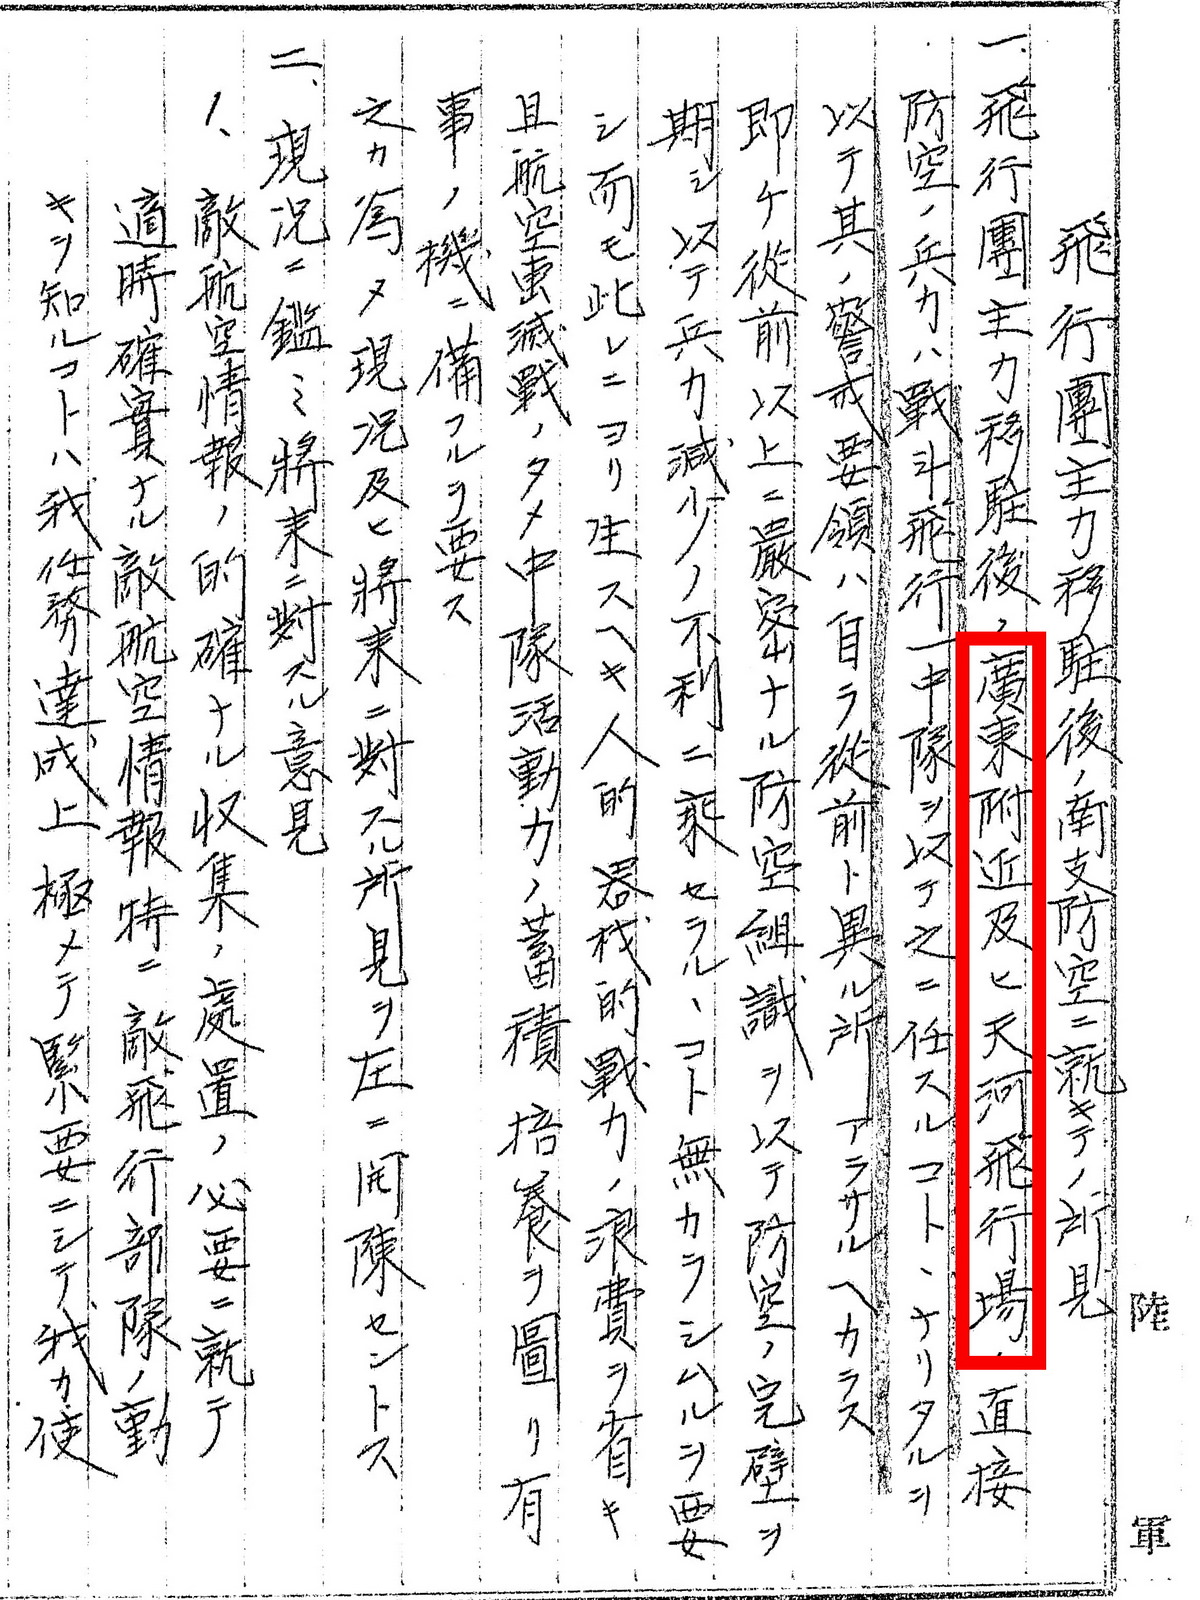 飛行團主力移駐後ノ南支防空ニ就キテノ所見
一、飛行團主力移駐後ノ廣東附近及ヒ天河飛行場ノ直接
防空ノ兵力ハ戰斗飛行一中隊ヲ以テ之ニ任スルコトヽナリタルヲ
以テ其ノ警戒要領ハ自ラ從前ト異ル所アラサルヘカラス
即ケ從前以上ニ嚴密ナル防空組識ヲ以テ防空ノ完壁ヲ
期シ以テ兵力減少ノ不利ニ乘セラルヽコト無カラシムルヲ要
シ而モ此レニヨリ生スヘキ人的器材的戰力ノ浪費ヲ省キ
且航空擊滅戰ノタメ中隊活動力ノ蓄積培養ヲ圖リ有
事ノ機ニ備フルヲ要ス
之カ爲メ現況及ヒ將来ニ對スル所見ヲ左ニ開陳セントス
二、現況ニ鑑ミ將来ニ對スル意見
1、敵航空情報ノ的確ナル収集ノ處置ノ必要ニ就テ
適時確實ナル敵航空情報特ニ敵飛行部隊ノ動
キヲ知ルコトハ我任務達成上極メテ緊要ニシテ我カ使
陸軍